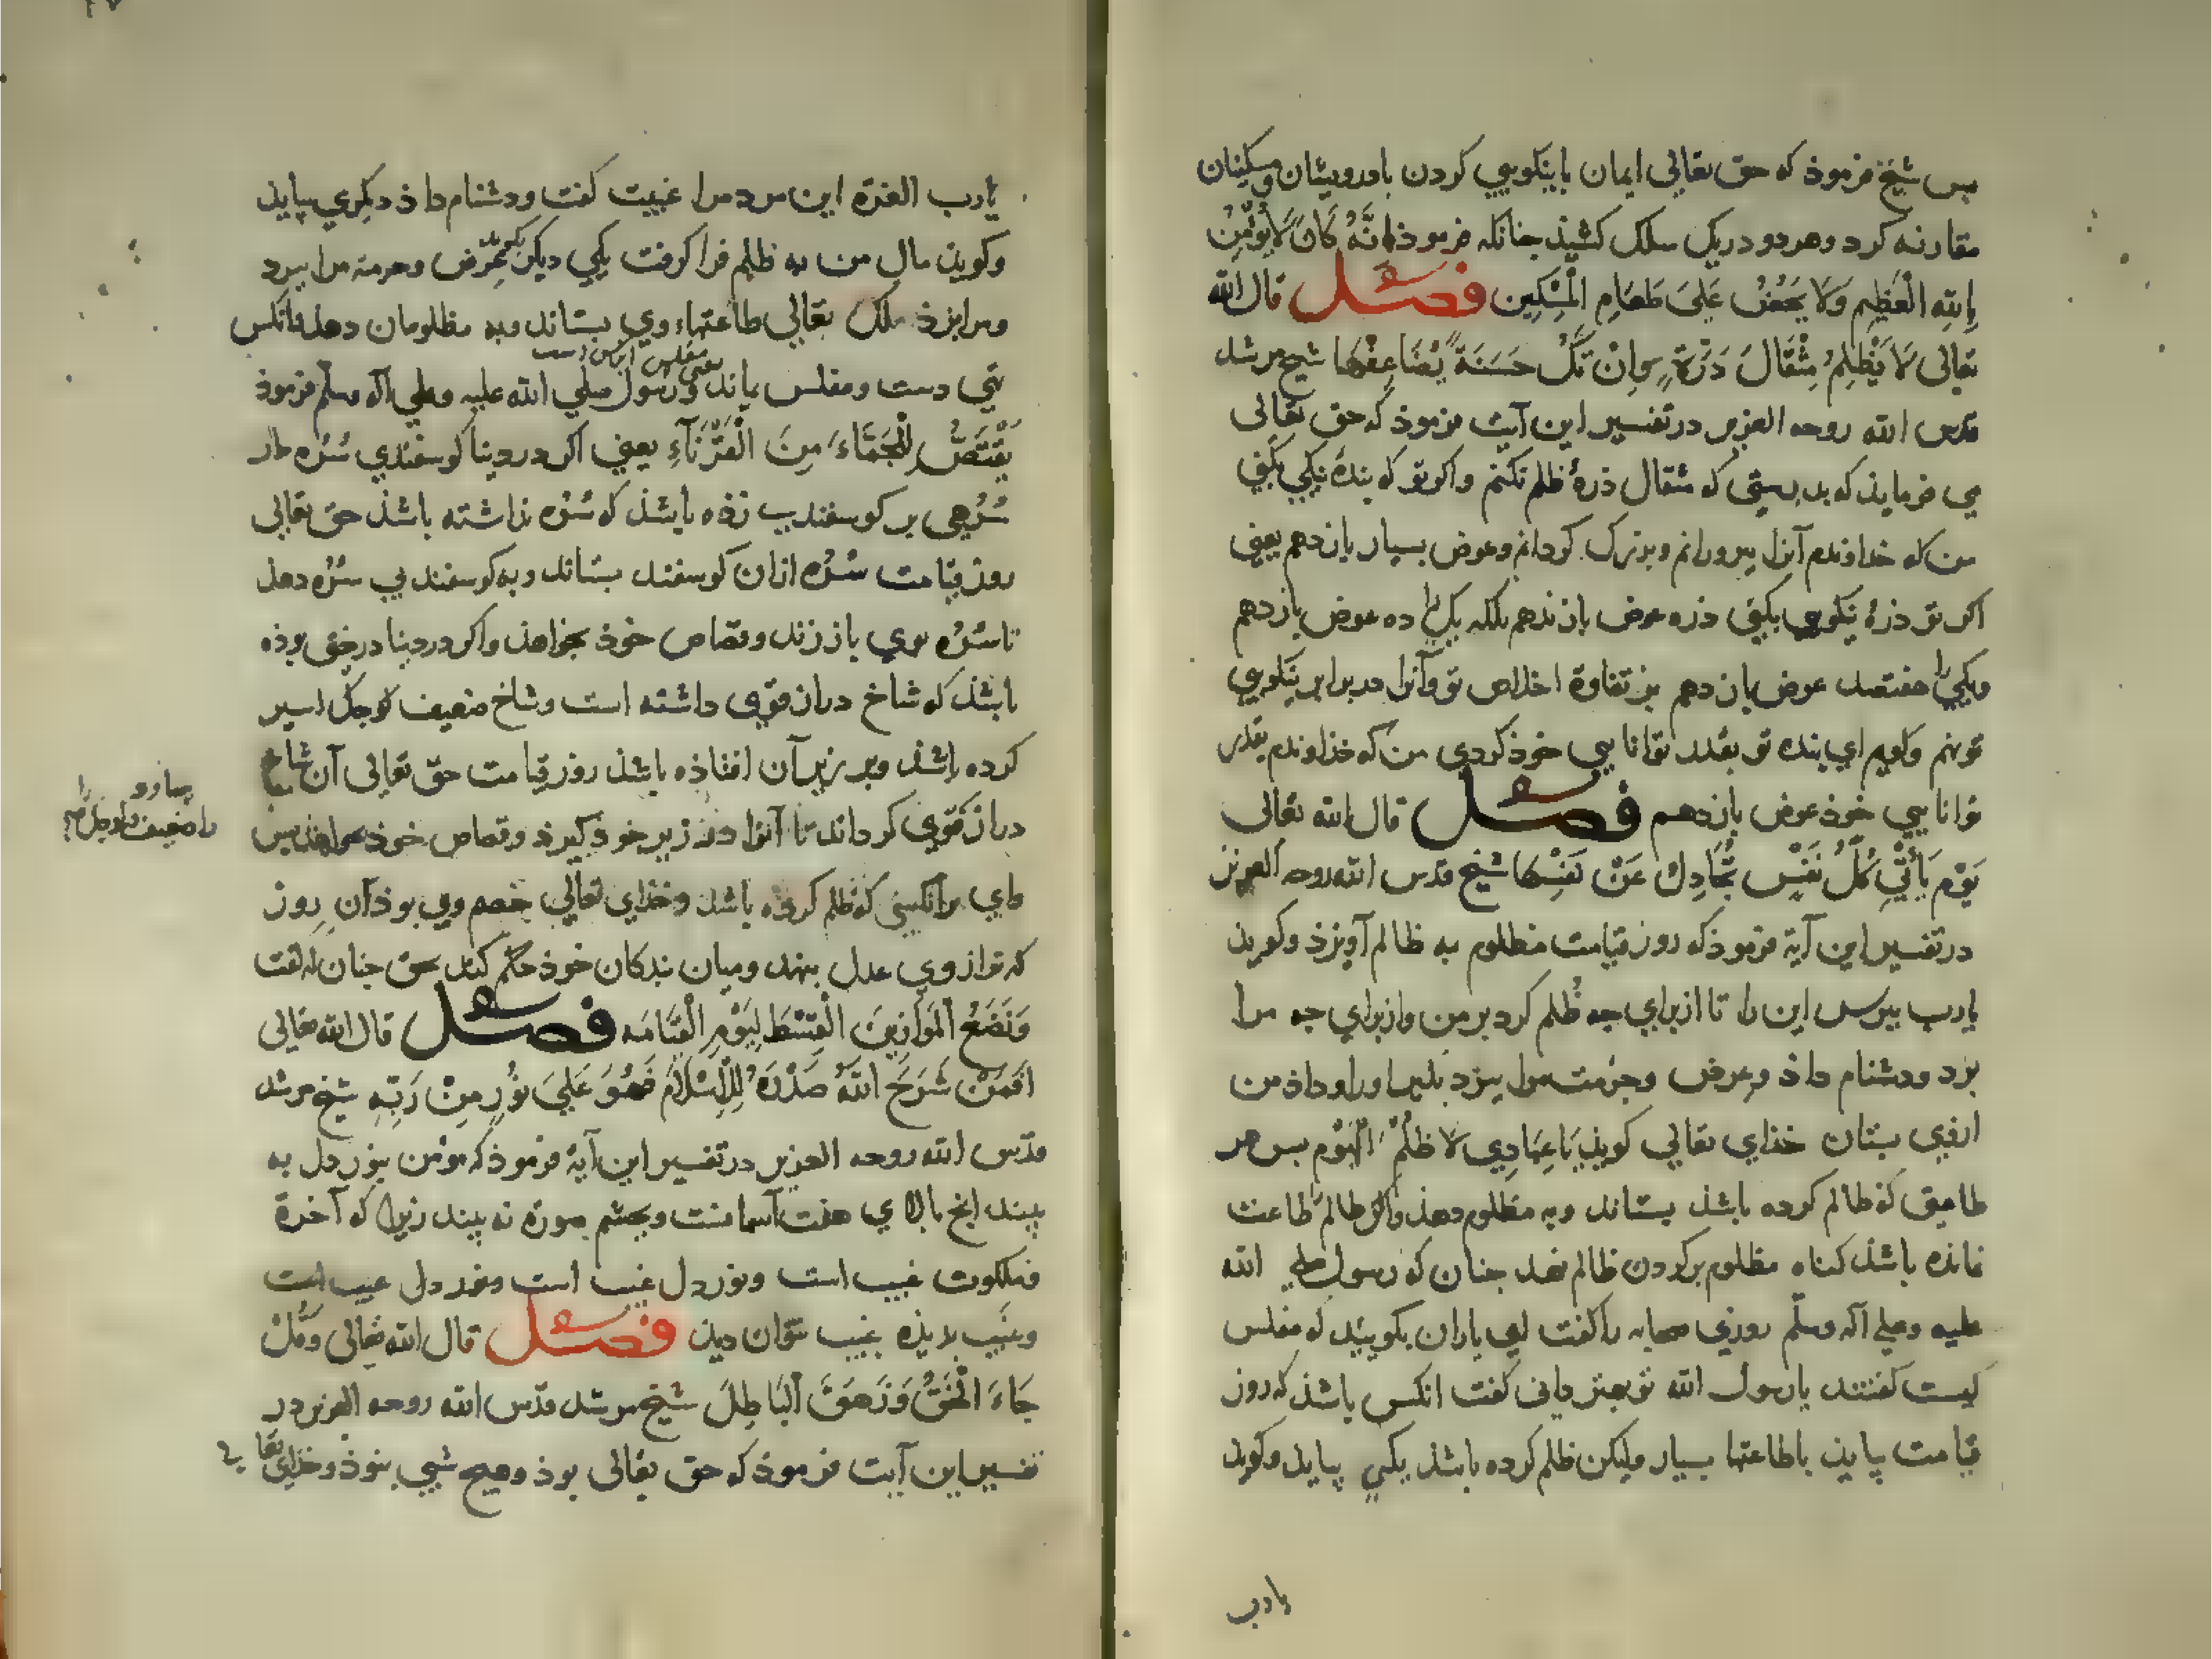 پس شیخ فرموذ که حق تعالی ایمان بانیکویی کردن بادرویشان ومسکینان
مقارنه کرد وهردو دریک سلک کشیذ جنانکه فرموذ اِنَّهُ کَانَ لَا یُؤْمِنُ
بِاللهِ الْعَظِیمِ وَلَا یَحُضُّ عَلَیَ طَعَامِ الْمِسْکِینِ فصل قال الله
تعالی لَا یَظْلِمُ مِثْقَالَ ذَرَّةٍ وَاِنْ تَکُ حَسَنَةً یُضَاعِفْهَا شیخ مرشد
قدس الله روحه العزیز درتفسیر این آیت فرموذ که حق تعالی
می فرمایذ که بدرستی که مثقال ذرهٔ ظلم نکنم واکرتو که بندهٔ نیکی بکنی
من که خداوندم آنرا بپرورانم وبزرک کردانم وعوض بسیار بازدهم یعنی
اکر تو ذرهٔ نیکویی بکنی ذره عوض بازندهم بلکه یکی را ده عوض بازدهم
ویکی را هفتصد عوض بازدهم بر تفاوة اخلاص تو وآنرا دربرابر نیکویی
تو نهم وکویم ای بنده تو بقدر توانایی خوذ کردی من که خذاوندم بقدر
توانایی خوذ عوض بازدهم فصل قال الله تعالی
یَوْمَ یَأْتِی کُلُّ نَفْسٍ تُجَادِلُ عَنْ نَفْسِهَا شیخ قدس الله روحه العزیز
درتفسیر این آیة فرموذ که روز قیامت مظلوم به ظالم آویزذ وکویذ
یارب بپرس این را تا ازبرای جه ظلم کرد برمن وازبرای جه مرا
بزد ودشنام داذ وعرض وحرمت مرا ببرد بکیر اورا وداذ من
ازوی بستان خذای تعالی کویذ یَاعِبَادِی لَا ظُلْمَ الْیَوْمَ پس هر
طاعتی که ظالم کرده باشذ بستاند وبه مظلوم دهذ واکر ظالم را طاعت
نمانده باشذ کناه مظلوم برکردن ظالم نهد جنان که رسول صلی الله
علیه وعلی آله وسلّم روزی صحابه را کفت ای یاران بکوییذ که مفلس
کیست کفتند یارسول الله تو بهتر دانی کفت انکس باشذ که روز
قیامت بیایذ باطاعتها بسیار ولیکن ظلم کرده باشذ یکی بیایذ وکویذ
یارب
یارب العزة این مرد مرا غیبت کفت ودشنام داذ دیکری بیایذ
وکویذ مال من به ظلم فرا کرفت یکی دیکر بکویذ عرض وحرمة مرا ببرد
ومرا بزذ ملک تعالی طاعتهاء وی بستاند وبه مظلومان دهد تا آنکس
تهی دست ومفلس بماند ورسول صلی الله علیه وعلی آله وسلّم فرموذ
یعنی مفلس این کس است
یُقْتَصُّ لِلْجَمَّاءَ مِنَ الْقَرْنَآءِ یعنی اکر دردنیا کوسفندی سُرُه دار
سُرُهی بر کوسفندی زذه باشذ که سُرُه نداشته باشذ حق تعالی
روز قیامت سُرُه ازان کوسفند بستاند وبه کوسفند بی سُرُه دهد
تا سُرُه بوی باز زند وقصاص خوذ بخواهذ واکر دردنیا درختی بوذه
باشذ که شاخ دراز قوی داشته است وشاخ ضعیف کوجک اسیر
کرده باشذ وبر زبر آن افتاذه باشذ روز قیامت حق تعالی آن شاخ
بیاورد
را ضعیف کوجک را
دراز قوی کرداند تا آنرا در زیر خوذ کیرذ وقصاص خوذ بخواهذ پس
وای برآنکسی که ظلم کرده باشد وخذای تعالی خصم وی بوذ آن روز
که ترازوی عدل بنهد ومیان بندکان خوذ حکم کند بحق جنان که کفت
وَنَضَعُ الْمَوَازِینَ الْقِسْطَ لِیَوْمِ الْقِیَامَه فصل قال الله تعالی
اَفَمَنْ شَرَحَ اللهُ صَدْرَهُ لِلْاِسْلَامِ فَهُوَ عَلَیَ نُورٍ مِنْ رَبِّهِ شیخ مرشد
قدّس الله روحه العزیز درتفسیر این آیة فرموذ که مؤمن بنور دل به
بیند انج بالای هفت آسمانست وبجشم صورة نه بیند زیرا که آخرة
وملکوت غیب است ونور دل غیب است وخرد دل غیب است
وغیب بدیذه غیب توان دیذ فصل قال الله تعالی وَقُلْ
جَاءَ الْحَقُّ وَزَهَقَ الْبَاطِلُ شیخ مرشد قدّس الله روحه العزیز در
تفسیر این آیت فرموذ که حق تعالی بوذ وهیچ شیی نبوذ وخذای تعالی